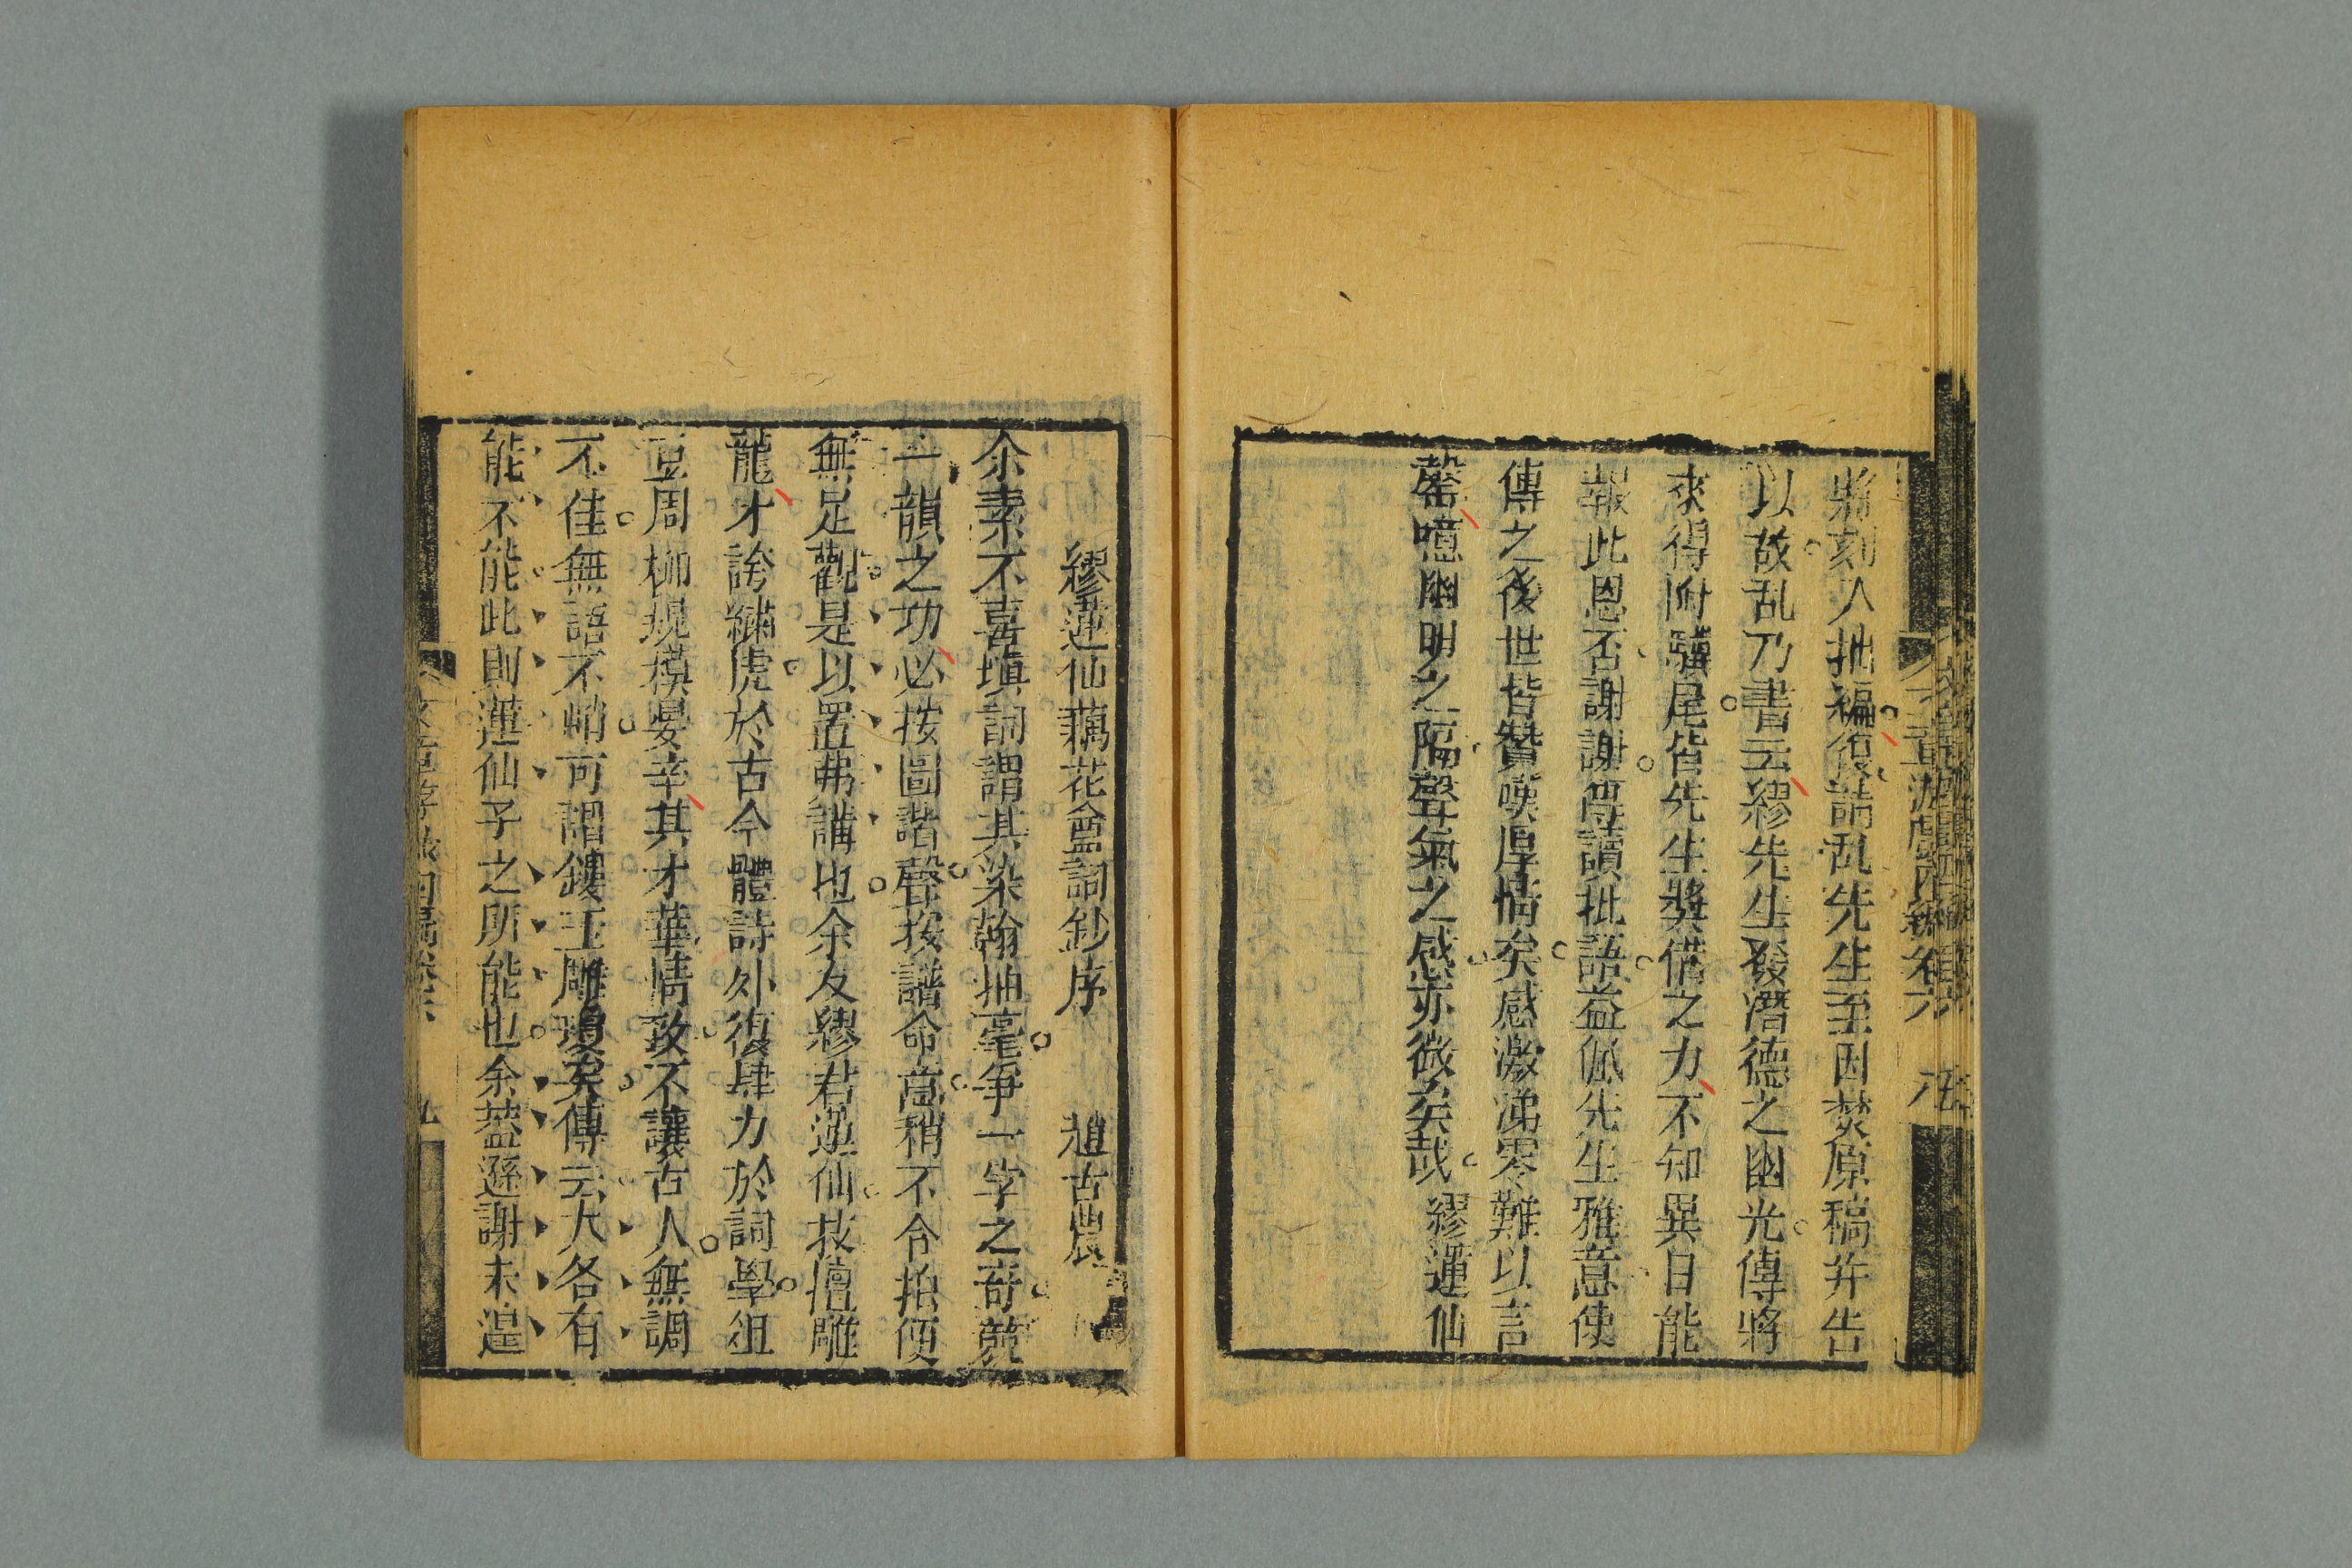 將刻入拙編復請乱先生至因焚原稿并告
以故乱乃書云繆先生發潛德之幽光傳將
來得附驥尾皆先生獎借之力不知異日能
報此恩否謝謝再讀批語益佩先生雅意使
傳之後世皆贊嘆厚情矣感激涕零難以言
罄噫幽明之隔聲氣之感亦微矣哉 繆蓮仙
繆蓮仙藕花盦詞鈔序 趙古農
余素不喜塡詞謂其染翰抽毫爭一字之奇競
一韻之功必按圖諧聲按譜命意稍不合拍便
無足觀是以置弗講也余友繆君蓮仙技擅雕
龍才誇繡虎於古今體詩外復肆力於詞學俎
豆周柳規模晏辛其才華情致不讓古人無調
不佳無語不峭可謂鏤玉雕瓊矣傳云人各有
能不能此則蓮仙子之所能也余葢遜謝未遑